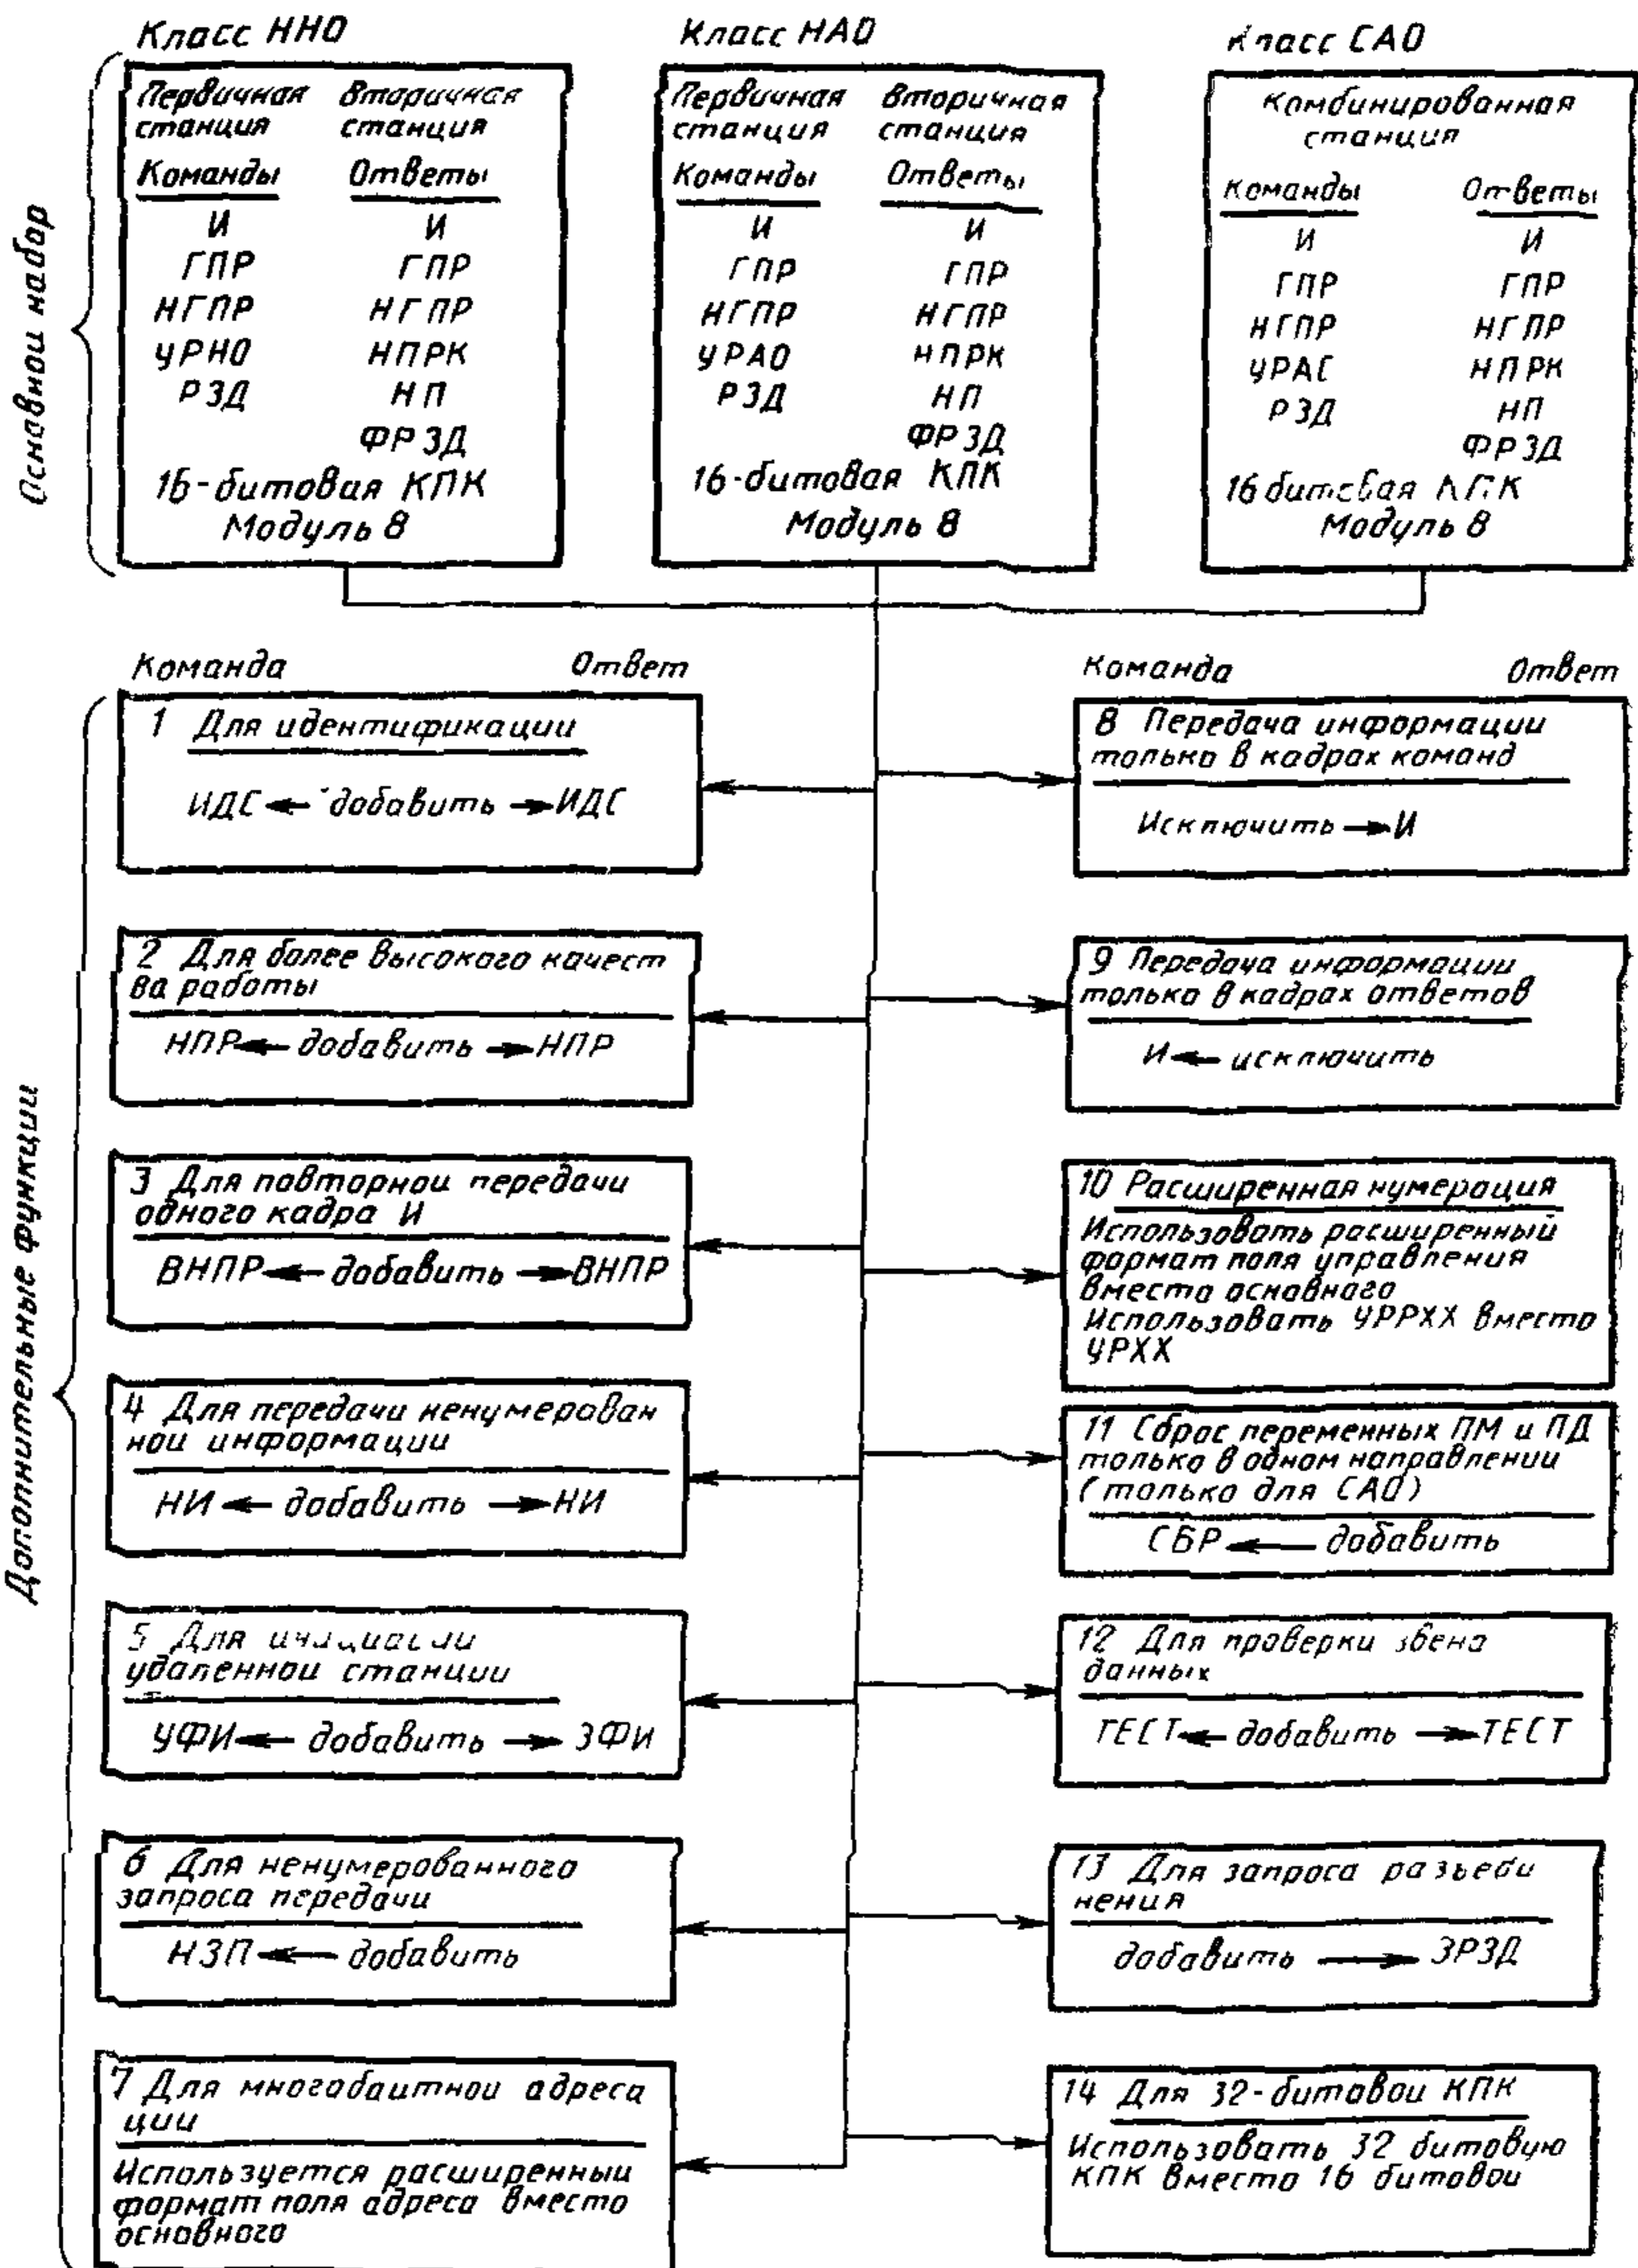 Класс ННО
Первичная станция
Вторичная станция
Команды
Ответы
И
И
ГПР
ГПР
НГПР
НГПР
УРНО
НПРК
РЗД
НП
ФРЗД
16-битовая КПК
Модуль 8
Класс НАО
Первичная станция
Вторичная станция
Команды
Ответы
И
И
ГПР
ГПР
НГПР
НГПР
УРАО
НПРК
РЗД
НП
ФРЗД
16-битовая КПК
Модуль 8
Класс САО
Комбинированная
станция
Команды
Ответы
И
И
ГПР
ГПР
НГПР
НГПР
УРАС
НПРК
РЗД
НП
ФРЗД
16 битовая КПК
Модуль 8
Основнои набор
Дополнительные функции
Команда
Ответ
1 Для идентификации
ИДС добавить ИДС
2 Для более высокого качест
ва работы
НПР добавить НПР
3 Для повторнои передачи
одного кадра И
ВНПР добавить ВНПР
4 Для передачи ненумерован
нои информации
НИ добавить НИ
5 Для
удаленнои станции
УФИ добавить ЗФИ
6 Для ненумерованного
запроса передачи
НЗП добавить
7 Для многобаитнои адреса
ции
Используется расширенныи
формат поля адреса вместо
основного
Команда
Ответ
8 Передача информации
только в кадрах команд
Исключить И
9 Передача информации
только в кадрах ответов
И исключить
10 Расширенная нумерация
Использовать расширенный
формат поля управления
вместо основного
Использовать УРРХХ вместо
УРХХ
11 Сброс переменных ПМ и ПД
только в одном направлении
(только для САО)
СБР добавить
12 Для проверки звена
данных
ТЕСТ добавить ТЕСТ
13 Для запроса разъеди
нения
добавить ЗРЗД
14 Для 32-битовои КПК
Использовать 32 битовую
КПК вместо 16 битовои